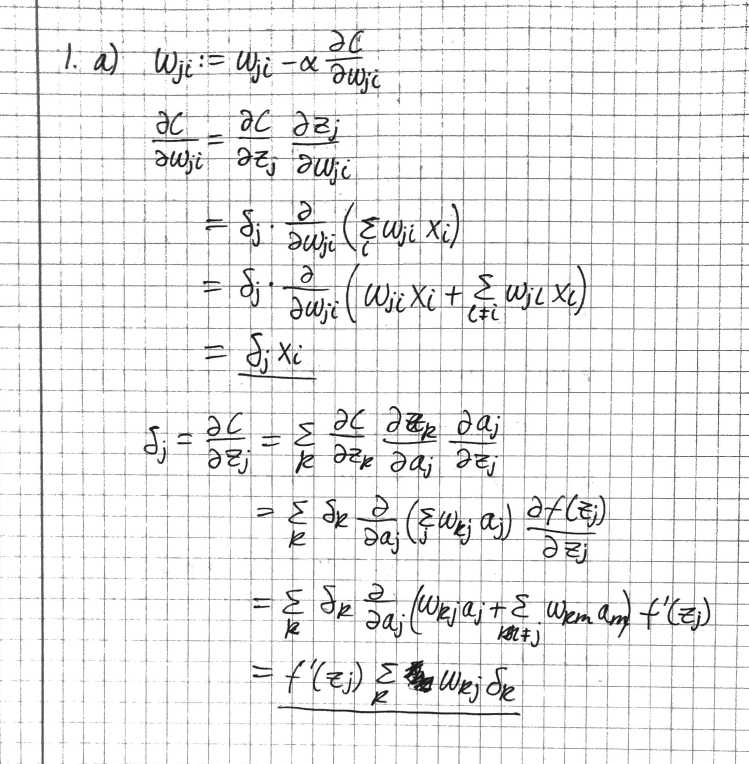 1. a) w_{ji} := w_{ji} - α ∂C/∂w_{ji}
∂C/∂w_{ji} = ∂C/∂z_j ∂z_j/∂w_{ji}
= δ_j · ∂/∂w_{ji} (Σ_i w_{ji} x_i)
= δ_j · ∂/∂w_{ji} (w_{ji} x_i + Σ_{l≠i} w_{jl} x_l)
= δ_j x_i
δ_j = ∂C/∂z_j = Σ_k ∂C/∂z_k ∂z_k/∂a_j ∂a_j/∂z_j
= Σ_k δ_k ∂/∂a_j (Σ_j w_{kj} a_j) ∂f(z_j)/∂z_j
= Σ_k δ_k ∂/∂a_j (w_{kj} a_j + Σ_{m≠j} w_{km} a_m) f'(z_j)
= f'(z_j) Σ_k w_{kj} δ_k